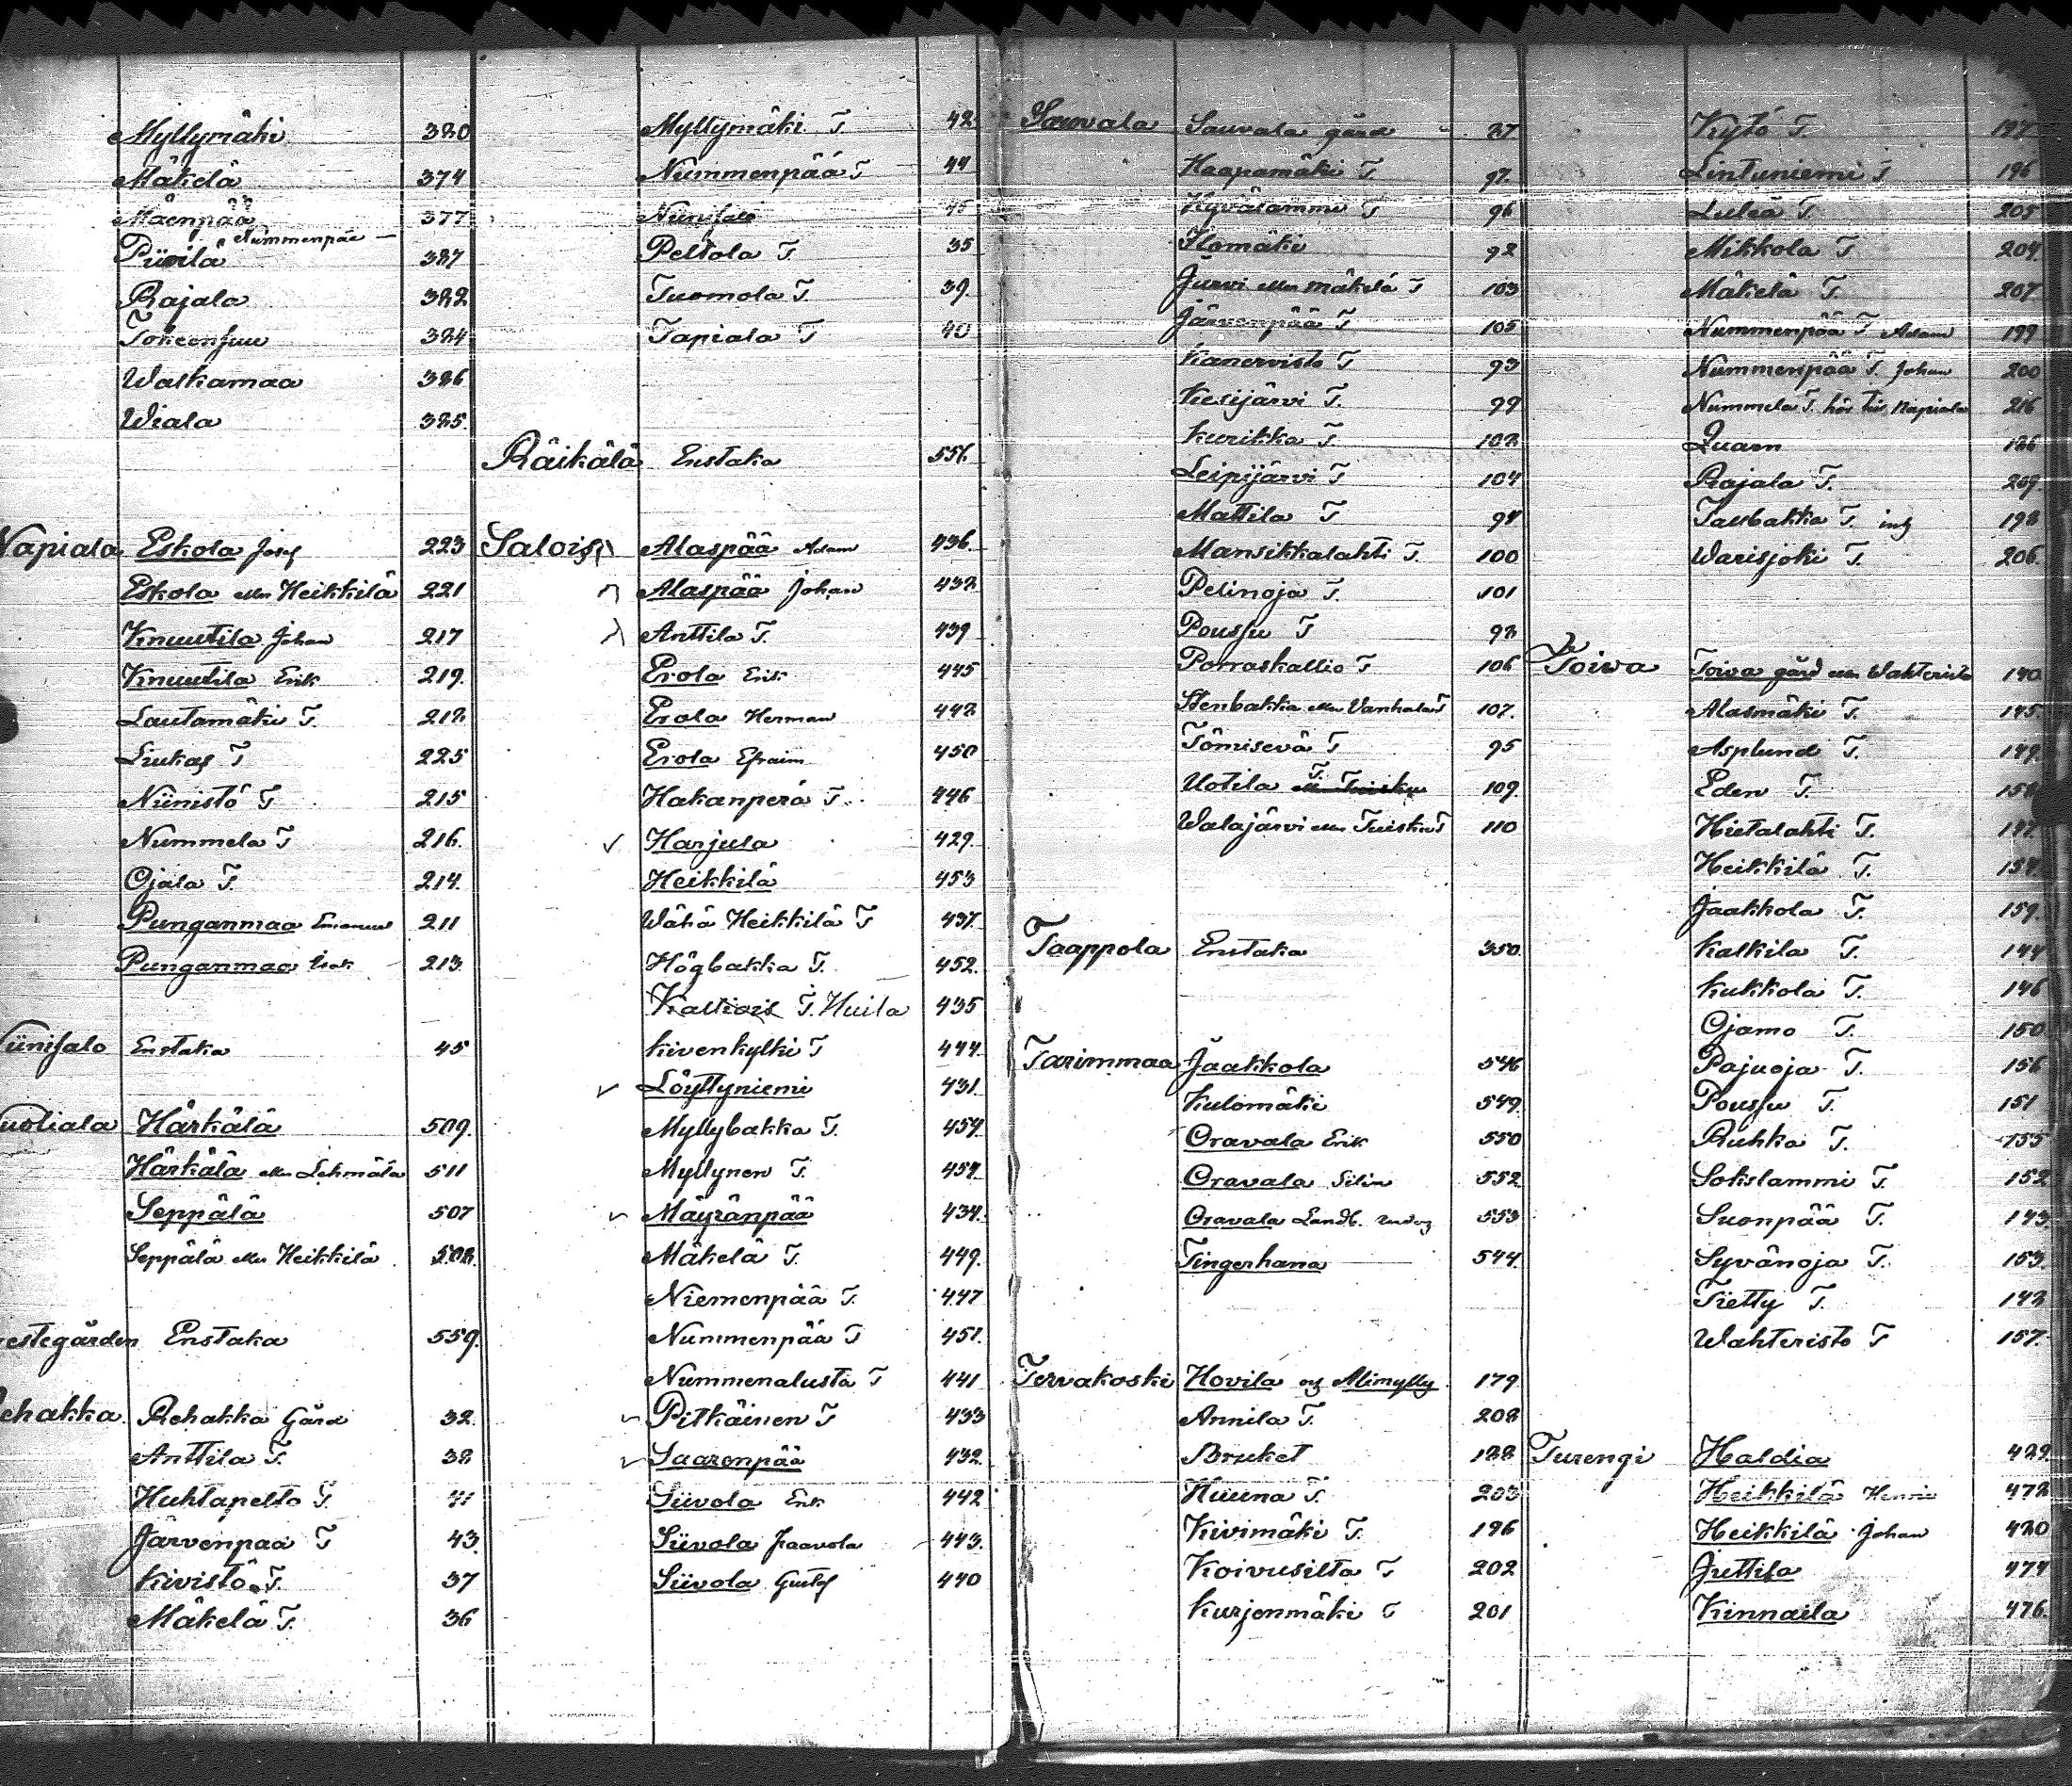 Myllymäki 380
Mäkelä 374
Mäenpää 377
Nummenpää —
Piirilä 387
Rajala 382
384
Waskamaa 386
Wiala 385
Napiala Eskola Josef 223
Eskola eller Heikkilä 221
Knuutila Johan 217
Knuutila Erik 219
Lautamäki T. 212
Liukas T 225
Niinistö T 215
Nummela T 216.
Ojala T. 214
Punganmaa 211
Punganmaa Isak 213
Niinisalo Enstaka 45
Nuoliala Härkälä 509.
Härkälä eller Lehmälä 511
Seppälä 507
Seppälä eller Heikkilä 508.
Prestegården Enstaka 559.
Rehakka Rehakka Gård 32.
Anttila T. 38
Huhtapelto T. 41
Järvenpää T 43.
Kivistö T. 37
Mäkelä T. 36
Myllymäki T. 42
Nummenpää T 44
Niinisalo 45
Peltola T. 35
Tuomola T. 39.
Tapiala T 40
Räikälä Enstaka 556.
Salois Alaspää Adam 436.
Alaspää Johan 438
Anttila T. 439
Erola Erik 445
Erola Herman 448
Erola Efraim 450
Hakanperä T. 446
Harjula 429.
Heikkilä 453
Wähä Heikkilä T 437.
Högbakka T. 452.
Kaltiais T. Huila 435
Kivenkylki T 444.
Löyttyniemi 431.
Myllybakka T. 454
Myllynen T. 454
Mäyränpää 434.
Mäkelä T. 449.
Niemenpää T. 447
Nummenpää T 451.
Nummenalusta T 441
Pitkäinen T 433
Saarenpää 432.
Siivola Erik 442
Siivola Jaavola 443.
Siivola Gustaf 440
Sauvala Sauvala gård 87
Haapamäki T. 97.
Hyvälammi T 96
Ilomäki 92
Jurvi eller Mäkelä T 103
Järvenpää T 105
Kanervisto T 93
Kesijärvi T. 99
Kurikka T. 102
Leipijärvi T 104
Mattila T 94
Mansikkalahti T. 100
Pelinoja T. 101
Poussu T 98
Porraskallio T 106
Stenbakka eller Vanhala T 107.
Tömisevä T 95
Uotila T. 109.
Walajärvi eller Tuisku T 110
Taappola Enstaka 350
Tarimmaa Jaakkola 546
Kulomäki 549.
Oravala Erik 550
Oravala 552
Oravala Landb. 553
Tingerhana 544.
Tervakoski Hovila och Alimylly 179
Annila T. 208
Bruket 188
Huuna T. 203
Kivimäki T. 196
Koivusilta T 202
Kurjenmäki T 201
Kytö T. 197
Lintuniemi T 196
Luleå T. 205
Mikkola T 204.
Mäkelä T. 207
Nummenpää T Adam 199
Nummenpää T. Johan 200
Nummela T. hör till Napiala 216
Quarn 186
Rajala T. 209.
Tallbakka T. 198
Warisjoki T. 206.
Toiwa Toiva gård eller Wahteristo 140
Alasmäki T. 145.
Asplund T. 149.
Eden T. 158
Hietalahti T. 147.
Heikkilä T. 154.
Jaakkola T. 159.
Kalkila T. 144
Kukkola T. 146
Ojamo T. 150
Pajuoja T. 156
Poussu T. 151
Ruhka T. 155
Sokslammi T 152
Suonpää T. 143.
Syvänoja T. 153.
Tietty T. 142
Wahteristo T 157.
Turengi Haldia 429.
Heikkilä Henric 478
Heikkilä Johan 480
Juttila 474
Kinnaila 476.